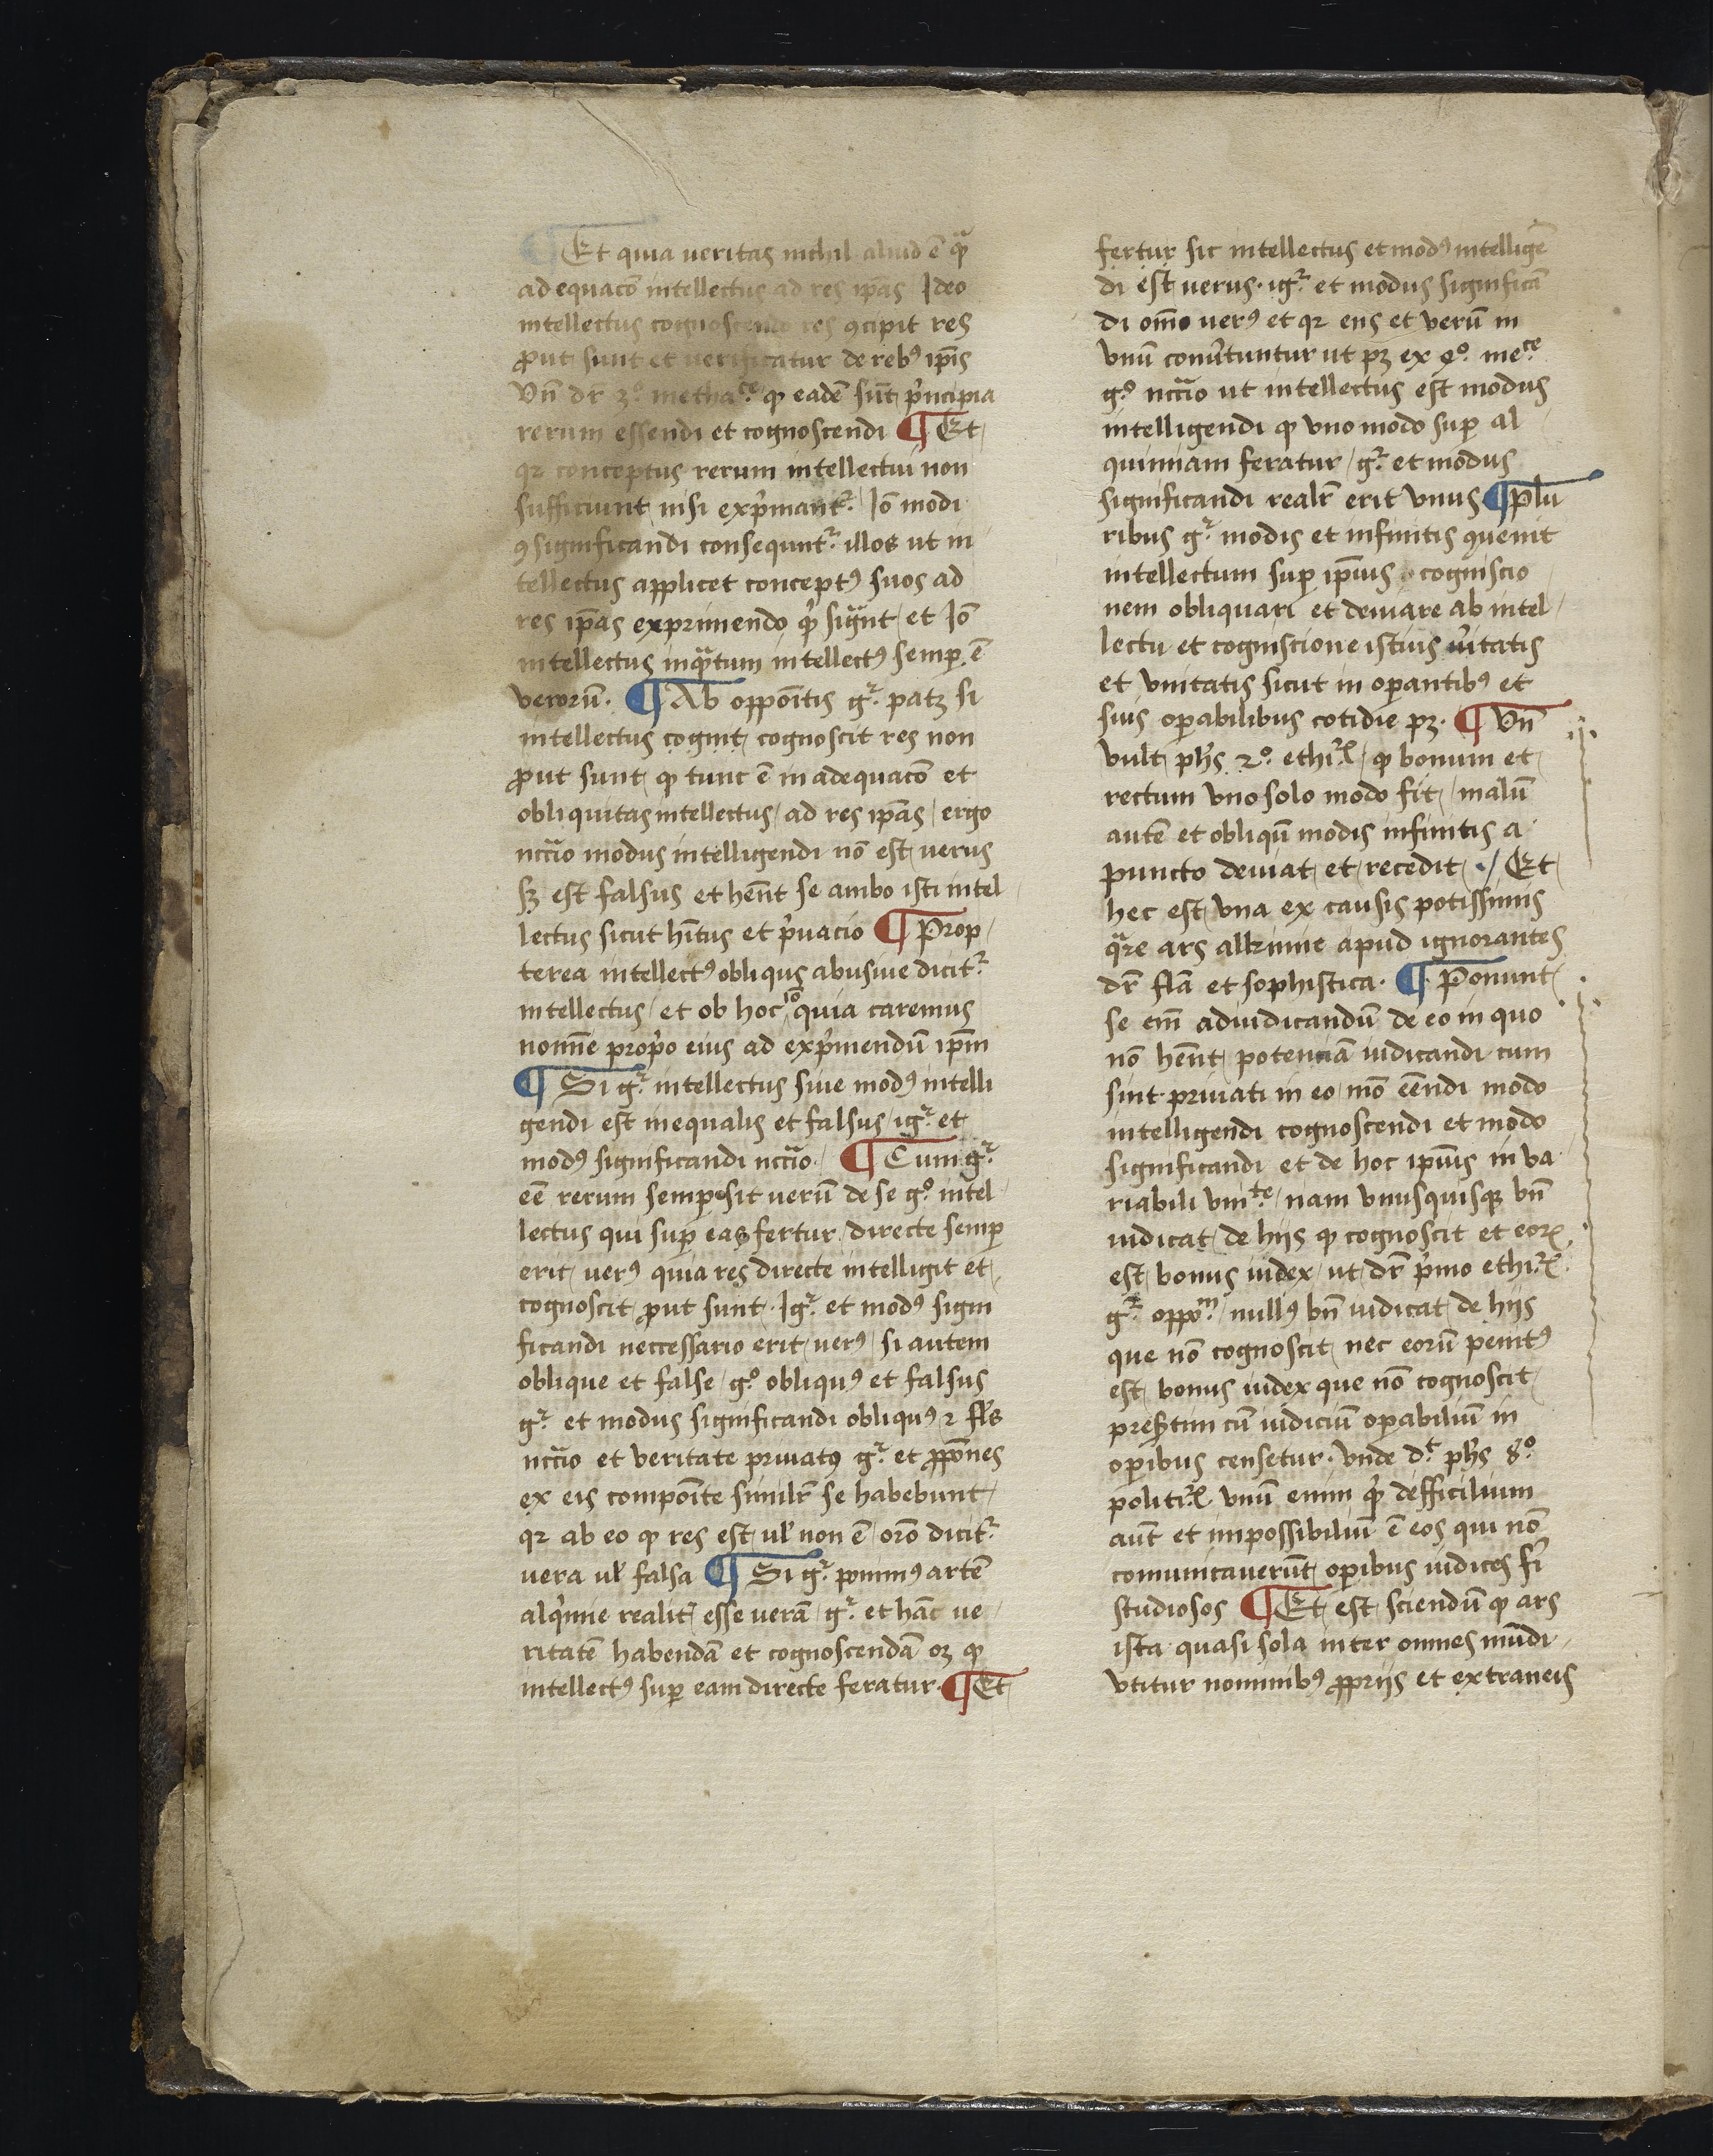 ¶ Et quia ueritas nichil aliud ē qᷓ
adequacō intellectus ad res ip̄as Ideo
intellectus cognoscendo res ꝯcipit res
ꝓut sunt et uerificatur de rebꝰ ip̄is
Vn̄ dr̄ 3ͦ. metha.ᶜᵉ ꝙ eadē sūt pͥncipia
rerum essendi et cognoscendi ¶ Et
qꝛ conceptus rerum intellectui non
sufficiunt nisi expͥmantᷣ. Iō modi
ꝯsignificandi consequntᷣ illos ut in
tellectus applicet conceptꝰ suos ad
res ip̄as exprimendo qͥ signͣt et Iō
intellectus inqᷓtum intellectꝰ semꝑ ē
verorū. ¶ Ab oppoītis gᷣ. patꝫ si
intellectus cognit cognoscit res non
ꝓut sunt ꝙ tunc ē inadequacō et
obliquitas intellectus ad res ip̄as ergo
nccͣio modus intelligendi nō est uerus
sꝫ est falsus et hēnt se ambo isti intel
lectus sicut hītus et pͥuacio ¶ Prop
terea intellectꝰ obliqus abusiue dicitᷣ
intellectus et ob hoc iō quia caremus
nomīe propͥo eius ad expͥmendū ip̄m
¶ Si gᷣ. intellectus siue modꝰ intelli
gendi est inequalis et falsus igᷣ et
modꝰ significandi nccͣio. ¶ Cum gᷣ
eē rerum semꝑ sit uerū de se gͦ. intel
lectus qui suꝑ eas fertur directe semꝑ
erit uerꝰ quia res directe intelligit et
cognoscit ꝓut sunt. Igᷣ. et modꝰ signi
ficandi neccessario erit uerꝰ si autem
oblique et false gͦ. obliquꝰ et falsus
gᷣ. et modus significandi obliquꝰ ⁊ fls̄
nccͣio et veritate priuatꝰ gᷣ. et ꝓpōnes
ex eis compoīte similr̄ se habebunt
qꝛ ab eo ꝙ res est ul̓ non ē orō dicitᷣ
uera ul̓ falsa ¶ Si gᷣ. ponimꝰ artē
alqͥmie realit̄ esse uerā gᷣ. et hāc ue
ritatē habendā et cognoscendā oꝫ ꝙ
intellectꝰ suꝑ eam directe feratur. ¶ Et
fertur sic intellectus et modꝰ intelligē
di est uerus. igᷣ. et modus significā
di om̄o uerꝰ et qꝛ ens et verū in
vnū conu̓tuntur ut pꝫ ex 4ͦ. me.ᶜᵉ
gͦ. nccͣio ut intellectus est modus
intelligendi ꝙ vno modo suꝑ al
quimiam feratur gᷣ. et modus
significandi realr̄ erit vnus ¶ Plu
ribus gᷣ modis et infinitis ꝯuenit
intellectum suꝑ ip̄ius cogniscio
nem obliquari et deuiare ab intel
lectu et cogniscione istius u̓itatis
et vnitatis sicut in oꝑantibꝰ et
suis oꝑabilibus cotidie pꝫ. ¶ Vn̄
vult ph̓s 2ͦ. ethi.ꝝ ꝙ bonum et
rectum vno solo modo fit malū
autē et obliqū modis infinitis a
puncto deuiat et recedit ./ Et
hec est vna ex causis potissimis
qᷓre ars alkimie apud ignorantes
dr̄ fla̅ et sophistica. ¶ Ponunt
se em̄ adiudicandū de eo in quo
nō hēnt potenciā iudicandi cum
sint priuati in eo mō eēndi modo
intelligendi cognoscendi et modo
significandi et de hoc ip̄ius in va
riabili vniᵗᵉ. nam vnusquisqꝫ bn̄
iudicat de hijs ꝙ cognoscit et eoꝝ
est bonus iudex ut dr̄ pͥmo ethi.ꝝ
gᷣ. oppoᵐ. nullꝰ bn̄ iudicat de hijs
que nō cognoscit nec eorū penitꝰ
est bonus iudex que nō cognoscit
presertim cū iudiciū oꝑabiliū in
oꝑibus censetur. vnde dᵗ ph̓s 8ͦ.
politi.ꝝ vnū enim qͥ defficilium
aut̄ et impossibiliū ē eos qui nō
comunicauerūt oꝑibus iudices fi̓
studiosos ¶ Et est sciendū ꝙ ars
ista quasi sola inter omnes mūdi
vtitur nominibꝰ ꝓprijs et extraneis